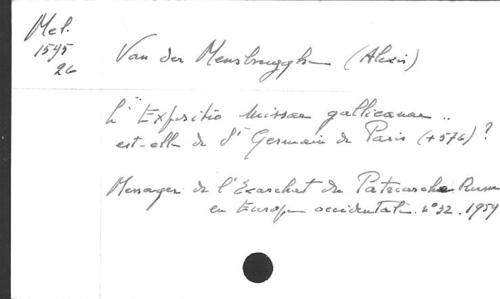 Mel.
1595
26
Van der Mensbrugghe (Alexis)
L'"Expositio missae gallicanae"
est-elle de St Germain de Paris (+576)?
Messager de l'Exarchat du Patriarche Russe
en Europe occidentale. n° 32. 1959